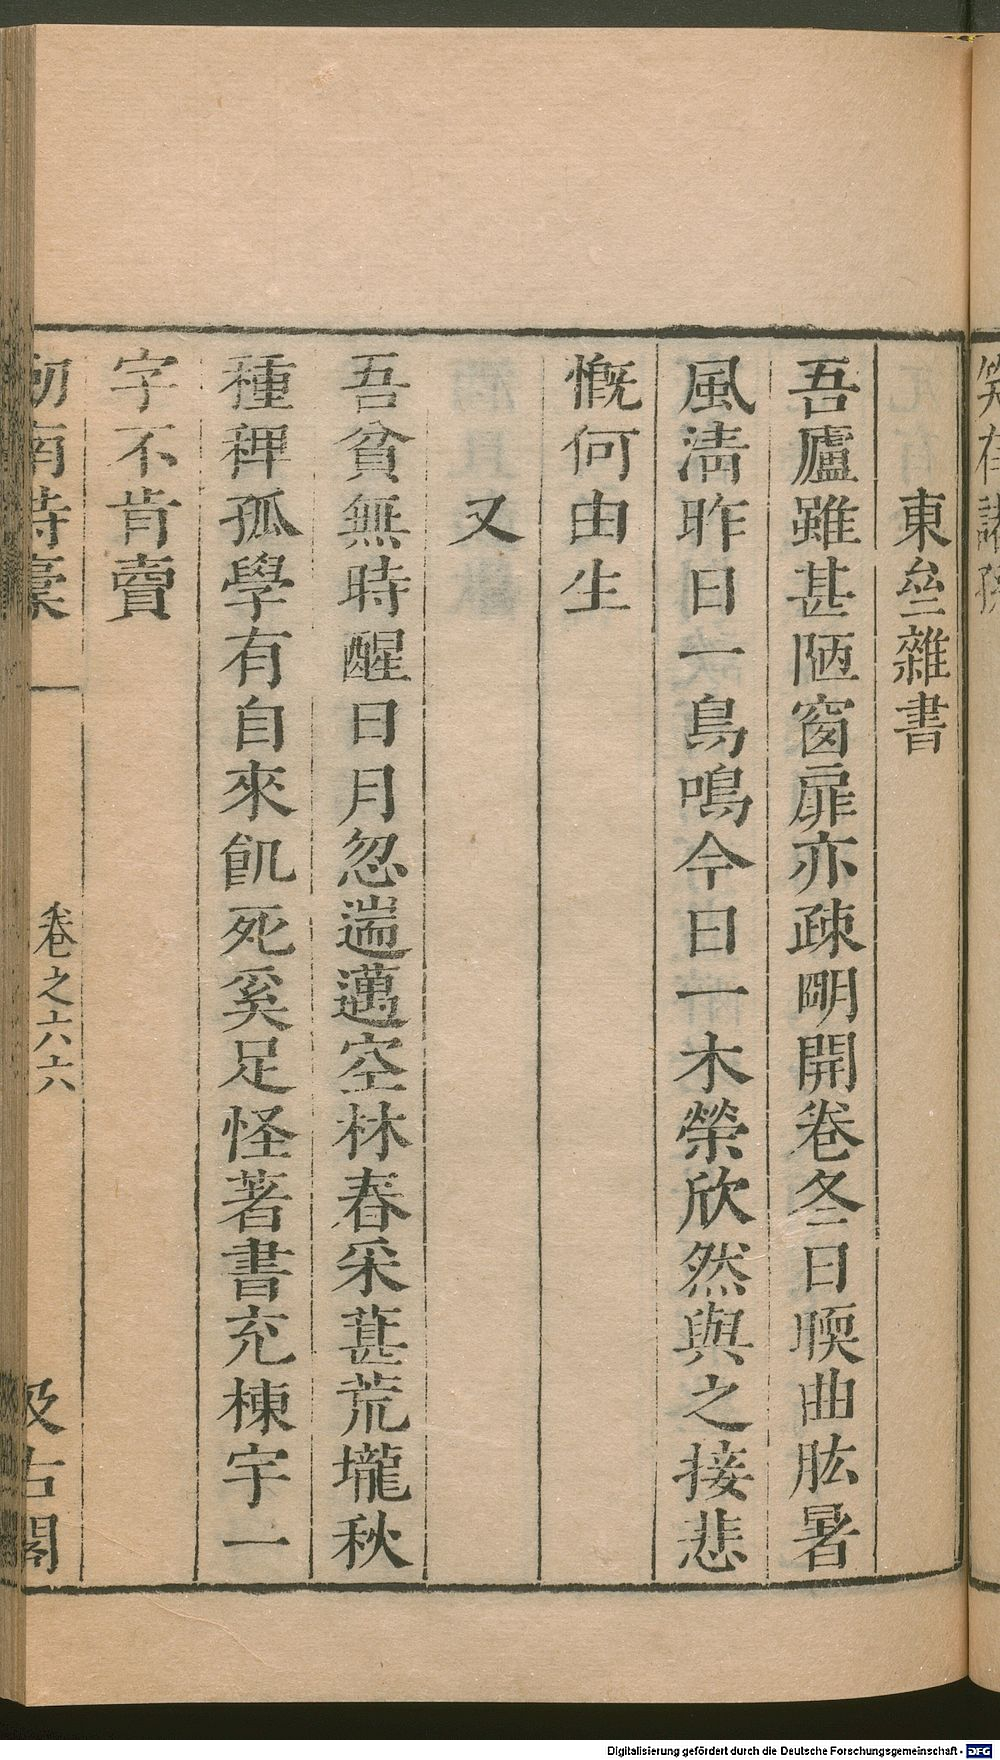 東垒雜書
吾廬雖甚陋窗扉亦疎明開卷冬日暝曲肱暑
風淸昨日一鳥鳴今日一木榮欣然與之接悲
慨何由生
又
吾貧無時醒日月忽遄邁空林春采葚荒壠秋
種稗孤學有自來飢死奚足怪著書充棟宇一
字不肯賣
劒南詩稾
卷之六六
汲古閣
Digitalisierung gefördert durch die Deutsche Forschungsgemeinschaft - DFG